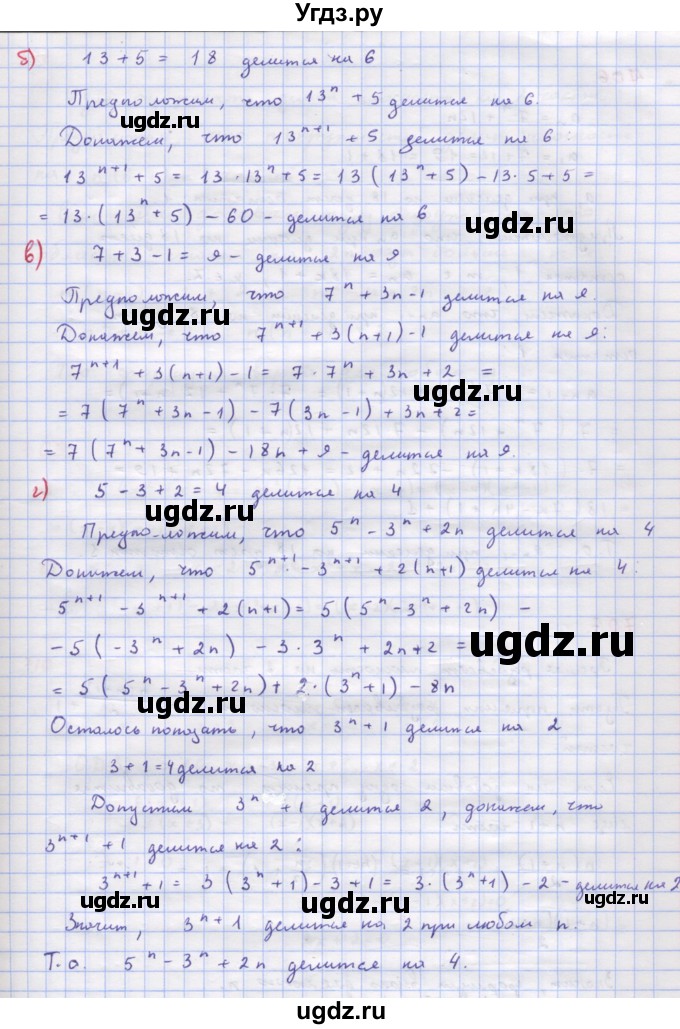 Угдз.ру
б) 13 + 5 = 18 делится на 6
Предположим, что 13^n + 5 делится на 6.
ugdz.ru ugdz.ru
Докажем, что 13^{n+1} + 5 делится на 6:
13^{n+1} + 5 = 13 · 13^n + 5 = 13 (13^n + 5) - 13 · 5 + 5 =
= 13 · (13^n + 5) - 60 - делится на 6
ugdz.ru
в) 7 + 3 - 1 = 9 - делится на 9
Предположим, что 7^n + 3n - 1 делится на 9.
ugdz.ru
Докажем, что 7^{n+1} + 3(n+1) - 1 делится на 9:
7^{n+1} + 3(n+1) - 1 = 7 · 7^n + 3n + 2 =
ugdz.ru
= 7 (7^n + 3n - 1) - 7 (3n - 1) + 3n + 2 =
= 7 (7^n + 3n - 1) - 18n + 9 - делится на 9.
ugdz.ru
г) 5 - 3 + 2 = 4 делится на 4
Предположим, что 5^n - 3^n + 2n делится на 4
Докажем, что 5^{n+1} - 3^{n+1} + 2(n+1) делится на 4:
5^{n+1} - 3^{n+1} + 2(n+1) = 5 (5^n - 3^n + 2n) -
- 5 (-3^n + 2n) - 3 · 3^n + 2n + 2 =
ugdz.ru
= 5 (5^n - 3^n + 2n) + 2 · (3^n + 1) - 8n
ugdz.ru
Осталось показать, что 3^n + 1 делится на 2
3 + 1 = 4 делится на 2
Допустим 3^n + 1 делится 2, докажем, что
3^{n+1} + 1 делится на 2:
ugdz.ru
3^{n+1} + 1 = 3 (3^n + 1) - 3 + 1 = 3 · (3^n + 1) - 2 - делится на 2
ugdz.ru
Значит, 3^n + 1 делится на 2 при любом n.
Т.о. 5^n - 3^n + 2n делится на 4.
ugdz.ru